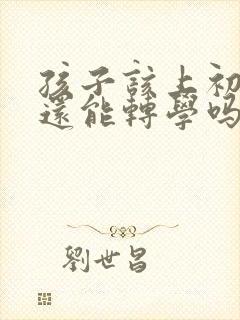 孩子該上初
還能轉學嗎
劉世昌